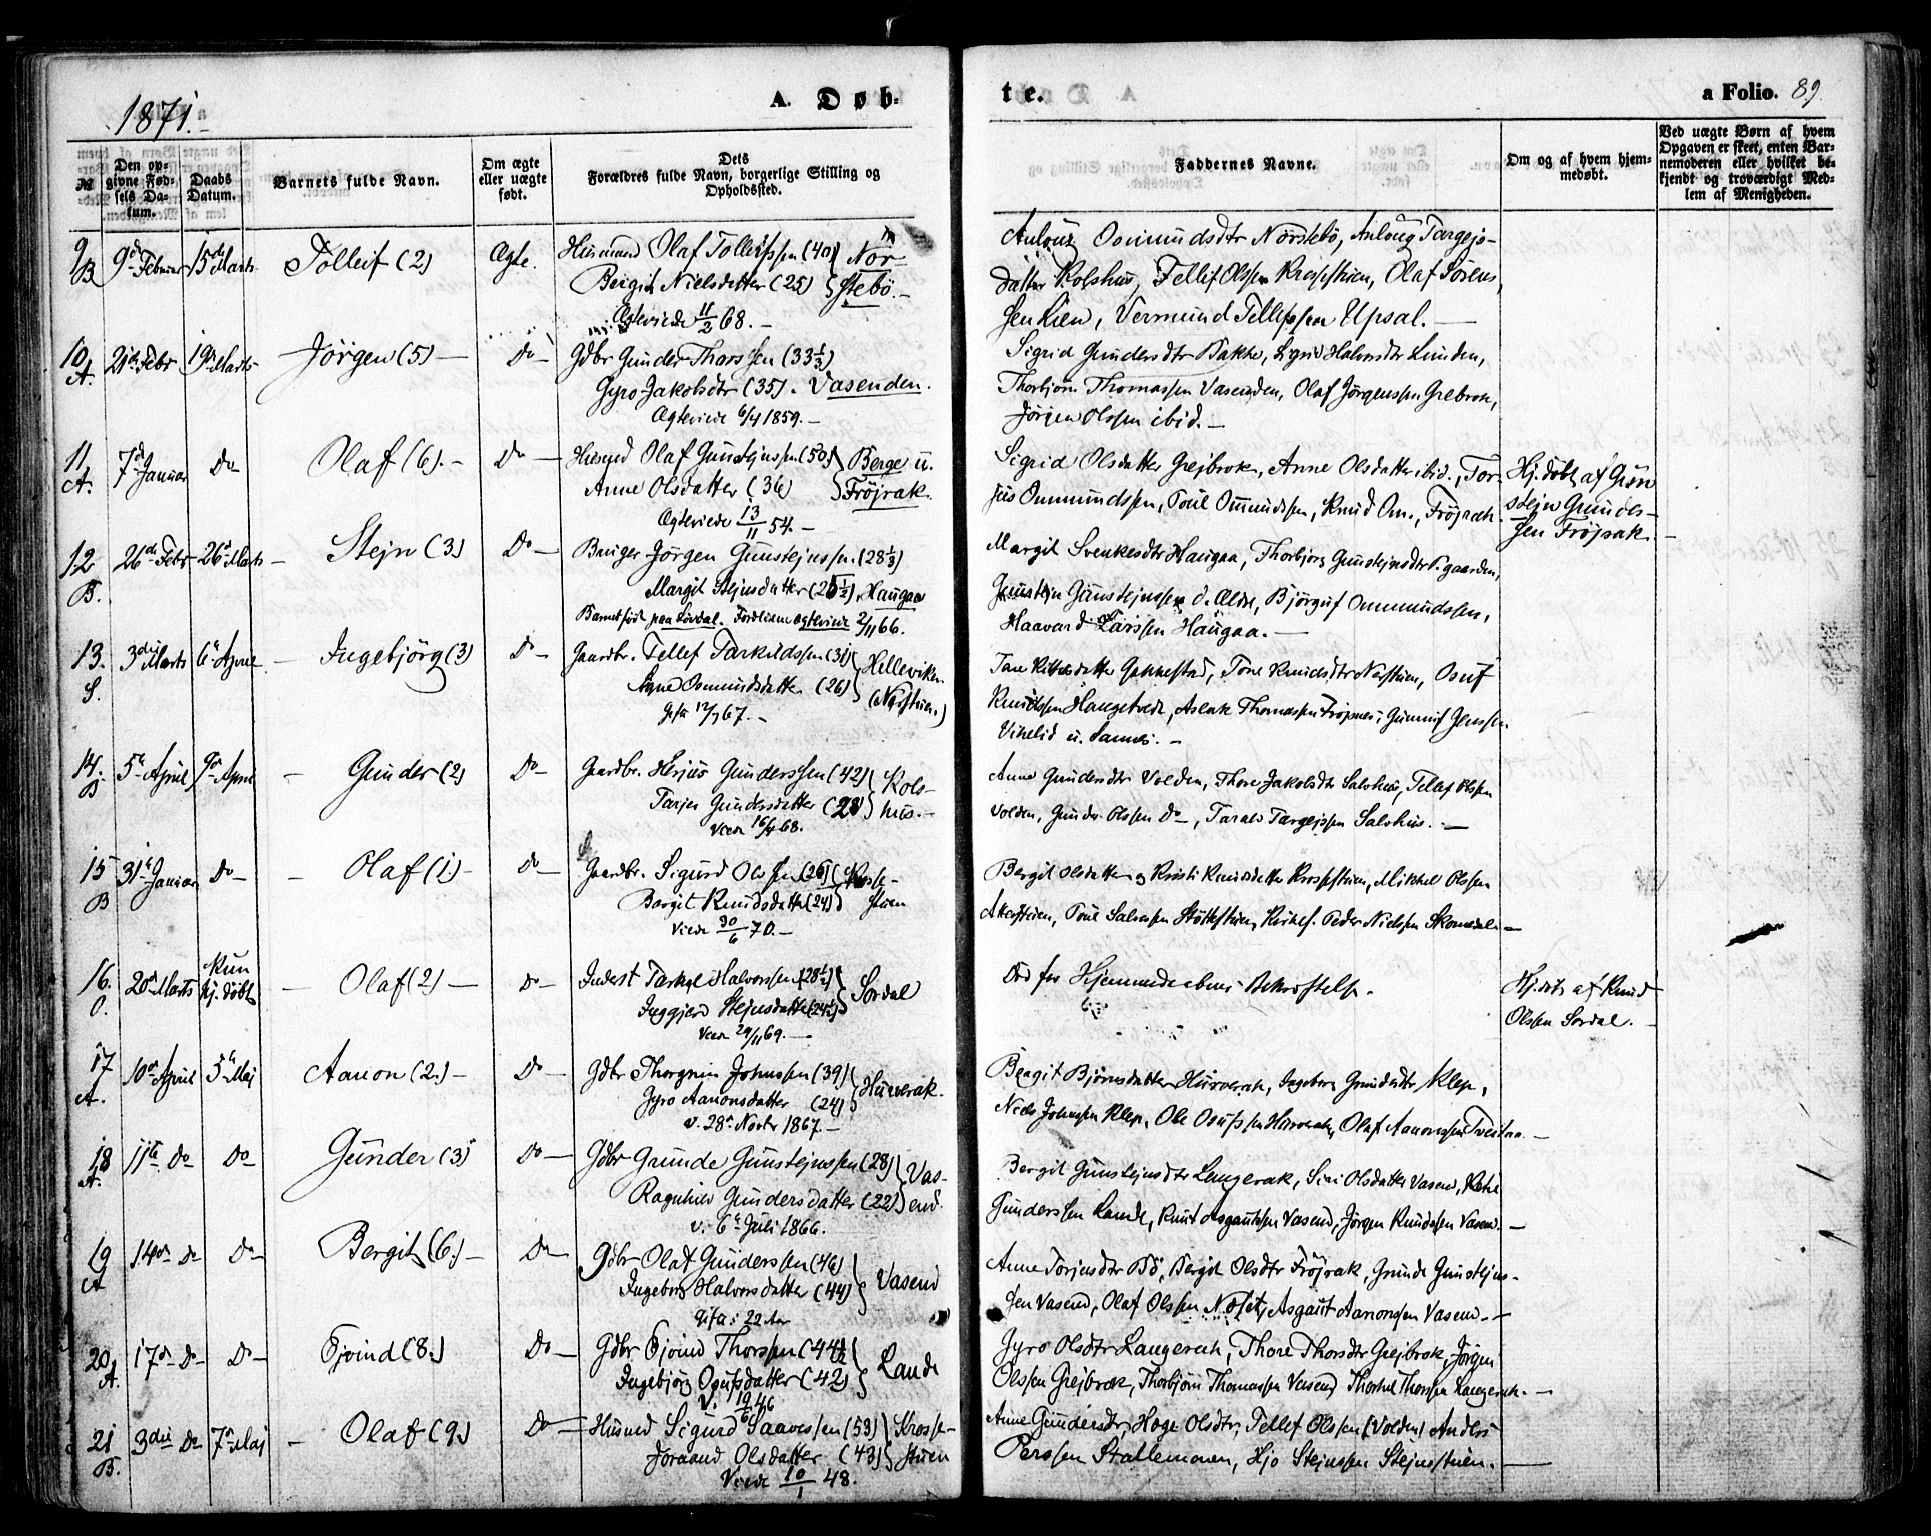 1871.
A. Døb-
te.
a Folio. 89.
№
Den opgivne Fødsels Datum.
Daabs Datum.
Barnets fulde Navn.
Om ægte eller uægte født.
Dets Forældres fulde Navn, borgerlige Stilling og Opholdssted.
Faddernes Navne.
Om og af hvem hjemmedøbt.
Ved uægte Børn af hvem Opgaven er skeet, enten Barnemoderen eller hvilket bekjendt og troværdigt Medlem af Menigheden.
9 B 9de Februar 15de Marts Tolleif (2) Ægte. Husmand Olaf Tolleifssen (40) Nor-
Bergit Nielsdatter (25) stebö.-
Ægteviede 11/2 68.-
Ommundsdtr Norstebö, Anloug Targejs-
datter Kolshus, Tellef Olssen Krossstuen, Olaf Sörens
sen Lien, Vermund Tellefssen Upsal.
10 A. 21de Febr 19de Marts Jörgen (5) Do Gdbr Gunder Thorssen (33 1/3)
Gyro Jakobsdtr (35). Vasenden.
Ægteviede 6/4 1859.-
Sigrid Gundersdtr Bakke, Sigrid Halvorsdtr Lunden,
Thorbjörn Thomassen Vasenden, Olaf Jörgenssen Grebrok,
Jörgen Olssen ibid.-
11 A. 7de Januar Do Olaf (6).- Do Husmd Olaf Gunstejnssen (50) Berge u.
Anne Olsdatter (36) Fröjrak.
Ægteviede 13/11 54.-
Sigrid Olsdatter Grejbrok, Anne Olsdatter ibid., Tor-
jus Ommundssen, Poul Ommundssen, Knud Om., Fröjrak.
Hj. döbt af Gun
stejn Gunder-
sen Fröjrak.
12 B. 26de Febr 26de Marts Stejn (3) Do Bruger Jörgen Gunstejnssen (28 1/3)
Margit Stejnsdatter (25 1/2), Haugaa
Barnet född paa Lövdal. Forældrene ægteviede 2/11 66.
Margit Svenkesdtr Haugaa, Thorbjorg Gunstejnsdtr
Gunstejn Gunstejnssen d. Ældre, Björguf Ommundssen,
Haavard Larssen Haugaa.-
13. S. 3die Marts 6te April Ingebjörg (3) Do Gaardbr. Tellef Tarkildssen (31) Hilleviken
Signe Osmundsdatter (26) (Nerstuen.)
Gifte 12/7 67.-
datter Gakkestad, Tone Knudsdtr Nerstuen, Osuf
Knudssen Haugetvedt, Aslak Thomassen Fröjsnes, Gunnuf Jenssen
Vikelid u. Sannes.-
14. B 5te April 9de April Gunder (2) Do Gaardbr. Herjus Gunderssen (42) Kols-
Tarjer Gundersdatter (28) hus.-
Viede 16/4 68.
Anne Gundersdtr Volden, Thore Jakobsdtr Salvhus, Tellef Olssen
Volden, Gunder Olssen Do, Tarald Targejssen Salvhus.-
15 B 31te Januar Do Olaf (1) Do Gaardbr. Sigurd Olssen (26) Krosse-
Bergit Knudsdatter (24) stuen
Viede 30/6 70.-
Bergit Olsdatter og Kristi Knudsdatter Krossestuen, Mikkel Olssen
Akerstuen, Poul Salvessen Slottestuen, Kirkes. Peder Nielssen Skomedal.-
16. O. 20de Marts Kun hj. döbt Olaf (2) Do Inderst Tarkel Halvorssen (28 1/2) Sordal
Inggjerd Stejnsdatter (24 1/2)
Viede 29/11 69.-
Död for Hjemmedaabens Bekræftelse.
Hj. döbt af Knud
Olssen Sordal.-
17 A. 10de April 5te Maj Aanon (2.) Do Gdbr Thorgrim Johnssen (39) Hurverak.
Gyro Aanonsdatter (24)
v. 28de Novbr 1867.-
Bergit Björnsdatter Hurverak, Ingeborg Gundersdtr Klep,
Niels Johnssen Klep, Ole Osufssen Hurverak, Olaf Aanonssen Tveitaa.-
18 A. 11te Do Do Gunder (3) Do Gdbr Grunde Gunstejnssen (28) Vas-
Ragnhild Gundersdatter (22) end.
v. 6te Juli 1866.
Bergit Gunstejnsdtr Langerak, Siri Olsdatter Vasend, Ketil
Gunderssen Lande, Knut Asgautssen Vasend, Jörgen Knudssen Vasend.-
19 A 14de Do Do Bergit (6.) Do Gdbr Olaf Gunderssen (46)
Ingeborg Halvorsdatter (44) Vasend
Gifte: 22 Aar
Anne Torjusdtr Bö, Bergit Olsdtr Fröjrak, Grunde Gunstejns-
sen Vasend, Olaf Olssen Nöset, Asgaut Aanonssen Vasend.-
20 A. 17de Do Do Ejvind (8.) Do Gdbr Ejvind Thorssen (44 1/2) Lande
Ingebjörg Osufsdatter (42)
V. 19/6 46
Gyro Olsdtr Langerak, Thore Thorsdtr Grejbrok, Jörgen
Olssen Grejbrok, Thorbjörn Thomassen Vasend, Thorkel Thorssen Langerak.-
21 B. 3die Do 7de Maj Olaf (9) Do Husmd Sigurd Saavessen (53) Krosse-
Joraand Olsdatter (43) stuen
Viede 10/1 48.
Anne Gundersdtr, Hæge Olsdtr, Tellef Olssen (Volden) Anders
Perssen Stallemonen, Hjo Stejnssen Stejnsstuen.-